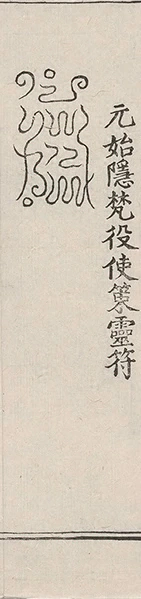 元始隱梵役使策靈符